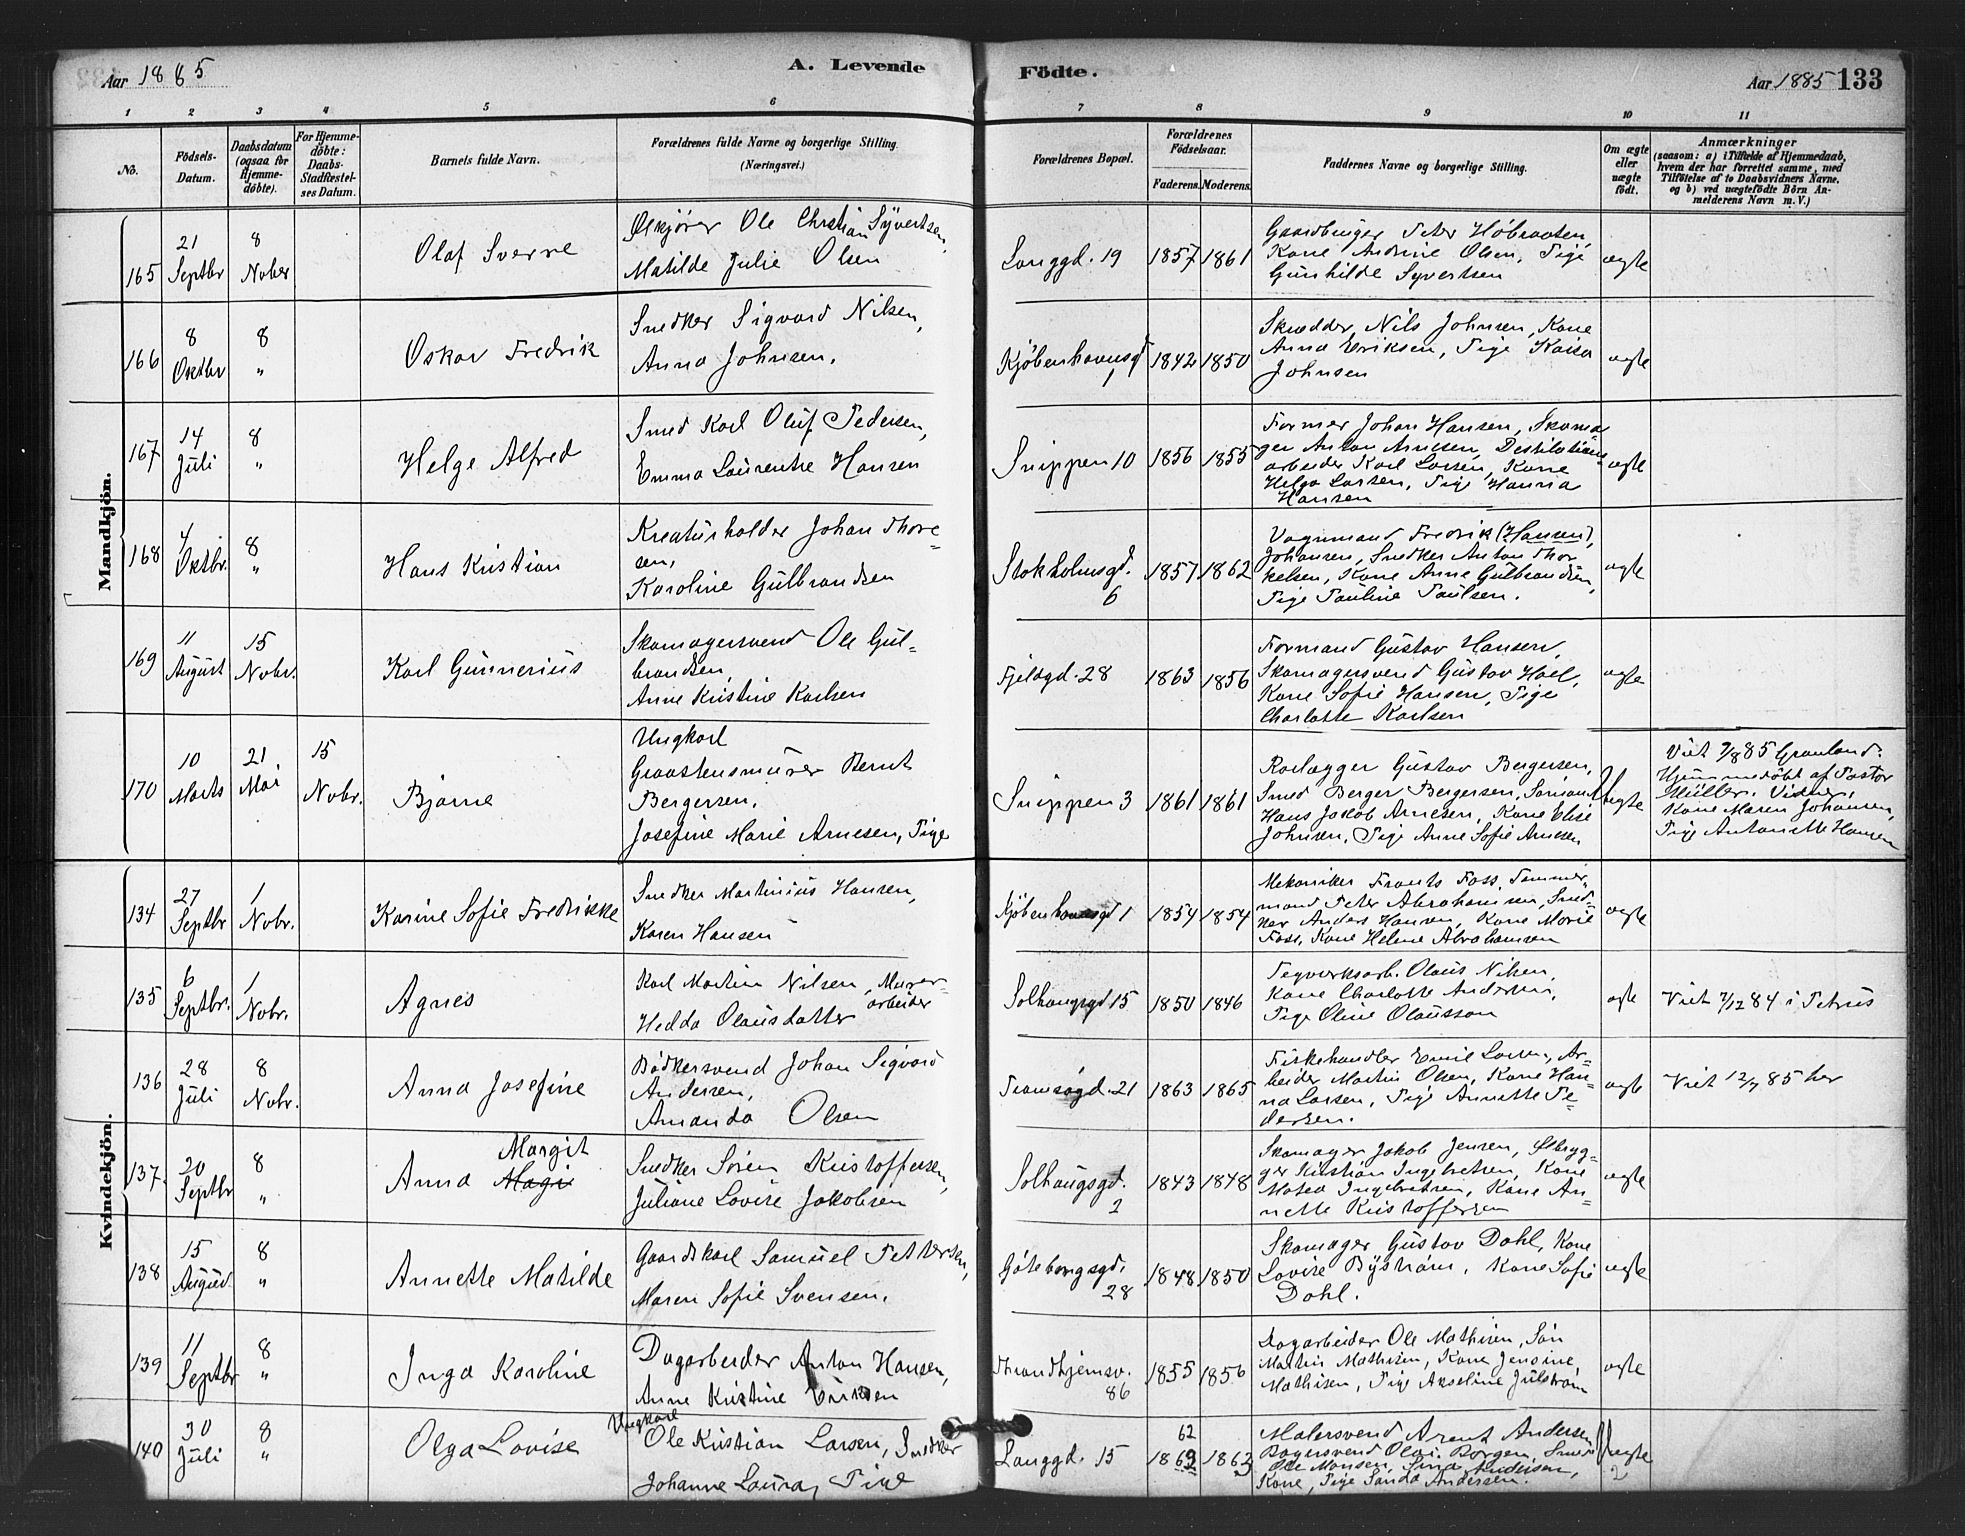 Aar 1885
A. Levende
Födte.
Aar 1885 133
1 2 3 4 5 6 7 8 9 10 11
No.
Födsels-
Datum.
Daabsdatum
(ogsaa for
Hjemme-
döbte).
For Hjemme-
döbte:
Daabs-
Stadfæstel-
ses Datum.
Barnets fulde Navn.
Forældrenes fulde Navne og borgerlige Stilling.
(Næringsvei.)
Forældrenes Bopæl.
Forældrenes
Födselsaar.
Faderens. Moderens.
Faddernes Navne og borgerlige Stilling.
Om ægte
eller
uægte
födt.
Anmærkninger
(saasom: a) i Tilfælde af Hjemmedaab,
hvem der har forrettet samme, med
Tilföielse af to Daabsvidners Navne,
og b) ved uægtefödte Börn An-
melderens Navn m.V.)
Mandkjön.
165
21
Septbr
8
Nober
Olaf Sverre
Ølkjører Ole Christian Syvertsen,
Matilde Julie Olsen
Langgd. 19
1857 1861
Gaardbruger Peter Høbraaten,
Kone Andrine Olsen, Pige
Gunhilde Syvertsen
ægte
166
8
Oktbr
8
"
Oskar Fredrik
Snedker Sigvard Nilsen,
Anna Johnsen.
Kjøbenhavnsgd
1
1842 1850
Skrædder Nils Johnsen, Kone
Anna Eriksen, Pige Kaisa
Johnsen
ægte
167
14
Juli
8
"
Helge Alfred
Smed Karl Oluf Pedersen,
Emma Laurentze Hansen
Snippen 10
1856 1855
Former Johan Hansen, Skoma
ger Anton Arnesen, Destilations-
arbeider Karl Larsen, Kone
Helga Larsen, Pige Hanna
Hansen
ægte
168
4
Oktbr.
8
"
Hans Kristian
Kreaturholder Johan Thore=
sen,
Karoline Gulbrandsen
Stokholmsgd.
6
1857 1862
Vognmand Fredrik (Hansen),
Johansen, Snedker Anton Thor
kelsen, Kone Anne Gulbrandsen,
Pige Pauline Paulsen.
ægte
169
11
August
15
Nobr.
Karl Gunnerius
Skomagersvend Ole Gul-
brandsen,
Anne Kristine Karlsen
Fjeldgd. 28
1863 1856
Formand Gustav Hansen,
Skomagersvend Gustav Hoel,
Kone Sofie Hansen, Pige
Charlotte Karlsen
ægte
170
10
Marts
21
Mai
15
Nobr.
Bjarne
Ungkarl
Graastensmurer Bernt
Bergersen,
Josefine Marie Arnesen, Pige
Snippen 3
1861 1861
Rørlægger Gustav Bergersen,
Smed Berger Bergersen, Sømand
Hans Jakob Arnesen, Kone Elise
Johnsen, Pige Anne Sofie Arnesen
Uægte
Viet 7/8 85 Grønland.
Hjemmedöbt af Pastor
Müller. Vidner,
Kone Maren Johansen,
Pige Antonette Hansen
Kvindekjön.
134
27
Septbr
1
Nobr.
Karine Sofie Fredrikke
Snedker Martinius Hansen,
Karen Hansen
Kjøbenhavnsgd 1
1854 1854
Mekaniker Frants Foss, Tømmer-
mand Peter Abrahamsen, Sned-
ker Anders Hansen, Kone Marie
Foss, Kone Helene Abrahamsen
ægte
135
6
Septbr.
1
Nobr.
Agnes
Karl Martin Nilsen, Murer-
arbeider
Hedda Olausdatter
Solhaugsgd 15
1850 1846
Tegverksarb. Olaus Nilsen,
Kone Charlotte Andersen,
Pige Oline Olausson
ægte
Viet 7/12 84 i Petrus
136
28
Juli
8
Nobr.
Anna Josefine
Bødkersvend Johan Sigvard
Andersen,
Amanda Olsen
Tromsøgd. 21
1863 1865
Fiskehandler Emil Larsen, Ar=
beider Martin Olsen, Kone Han=
na Larsen, Pige Annette Pe=
dersen.
ægte
Viet 12/7 85 her
137.
20
Septbr
8
"
Margit
Anna Magi
Snedker Søren Kristoffersen,
Juliane Lovise Jakobsen
Solhaugsgd.
2
1843 1848
Skomager Jakob Jensen, Ølbryg-
ger Kristian Ingebretsen, Kone
Matea Ingebretsen, Kone An=
nette Kristoffersen
ægte
138
15
August
8
"
Annette Matilde
Gaardskarl Samuel Pettersen,
Maren Sofie Svensen.
Gøteborgsgd.
28
1848 1850
Skomager Gustav Dahl, Kone
Lovise Bystrøm, Kone Sofie
Dahl.
ægte
139
11
Septbr
8
"
Inga Karoline
Dagarbeider Anton Hansen,
Anne Kristine Eriksen
Throndhjemsv.
86
1855 1856
Dagarbeider Ole Mathisen, Søn
Martin Mathisen, Kone Jensine
Mathisen, Pige Akseline Julstrøm
ægte
140
30
Juli
8
"
Olga Lovise
Ungkarl
Ole Kristian Larsen, Snedker
Johanne Laura, Pige
Langgd. 15
62
1863 1862
3
Malersvend Arent Andersen
Bagersvend Olai Borgen, Smed
Ole Monsen, Lina Andersen,
Kone, Pige Sanda Andersen.
Uægte
2